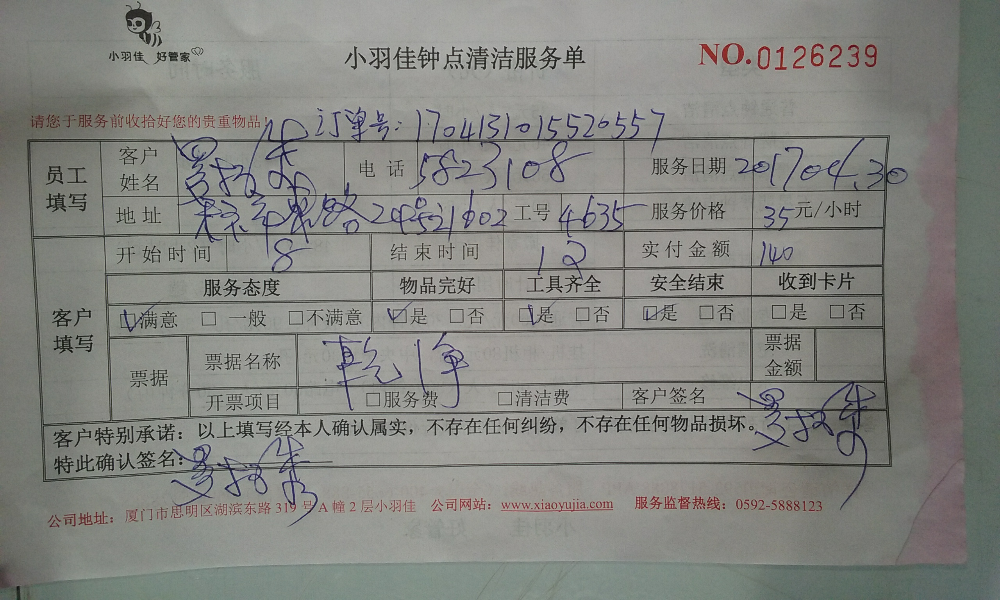 小羽佳 好管家
小羽佳钟点清洁服务单
NO.0126239
请您于服务前收拾好您的贵重物品!
订单号:1704131015520557
员工填写
客户姓名
电话 5823108
服务日期 201704.30
地址 24号21602
工号 4635
服务价格 35元/小时
客户填写
开始时间 8
结束时间 12
实付金额 140
服务态度 物品完好 工具齐全 安全结束 收到卡片
☑满意 □一般 □不满意 ☑是 □否 ☑是 □否 ☑是 □否 □是 □否
票据
票据名称 乾净
票据金额
开票项目 □服务费 □清洁费
客户签名
客户特别承诺:以上填写经本人确认属实,不存在任何纠纷,不存在任何物品损坏。
特此确认签名:
公司地址:厦门市思明区湖滨东路319号A幢2层小羽佳 公司网站:www.xiaoyujia.com 服务监督热线:0592-5888123